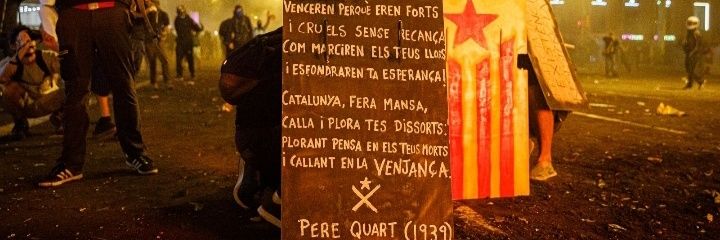 VENCEREN PERQUÈ EREN FORTS
I CRUELS SENSE RECANÇA
COM MARCIREN ELS TEUS LLORS
I ESFONDRAREN TA ESPERANÇA!
CATALUNYA, FERA MANSA,
CALLA I PLORA TES DISSORTS:
PLORANT PENSA EN ELS TEUS MORTS
I CALLANT EN LA VENJANÇA.
PERE QUART (1939)